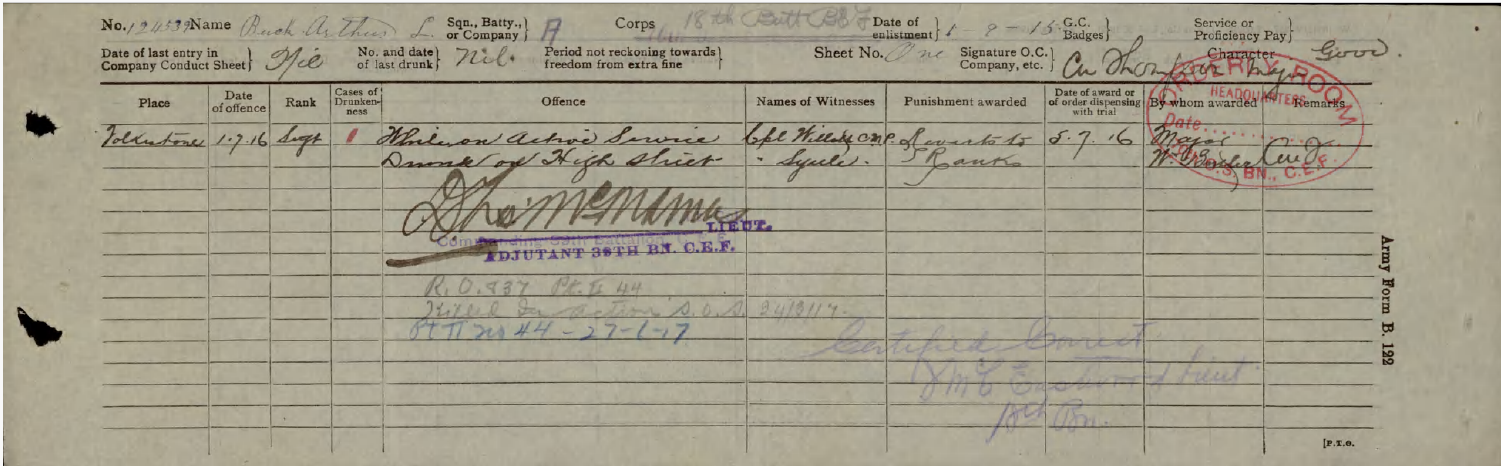 No. 124539 Name Buck Arthur L. Sqn., Batty., or Company} A Corps 18th Batt Date of enlistment} 1-9-15 G.C. Badges} Service or Proficiency Pay}
Date of last entry in Company Conduct Sheet} Nil No. and date of last drunk} Nil. Period not reckoning towards freedom from extra fine} Sheet No. One Signature O.C. Company, etc.} Thompson Character Good.
Place Date of offence Rank Cases of Drunkenness Offence Names of Witnesses Punishment awarded Date of award or of order dispensing with trial By whom awarded Remarks
Folkestone 1-7.16 Sergt 1 While on Active Service Cpl C.M.P. Reverts to 5.7.16 Major
Drunk on High Street " Ranks W.
ORDERLY ROOM
HEADQUARTERS
Date
BN., C.E.F.
LIEUT.
Commanding 39th Battalion
ADJUTANT 39TH BN. C.E.F.
R.O. 837 Pt. II 44
Killed In action S.O.S. 24/3/17.
Pt II no 44-27-6-17
Certified Correct
Lieut
Bn.
Army Form B. 122
[P.T.O.